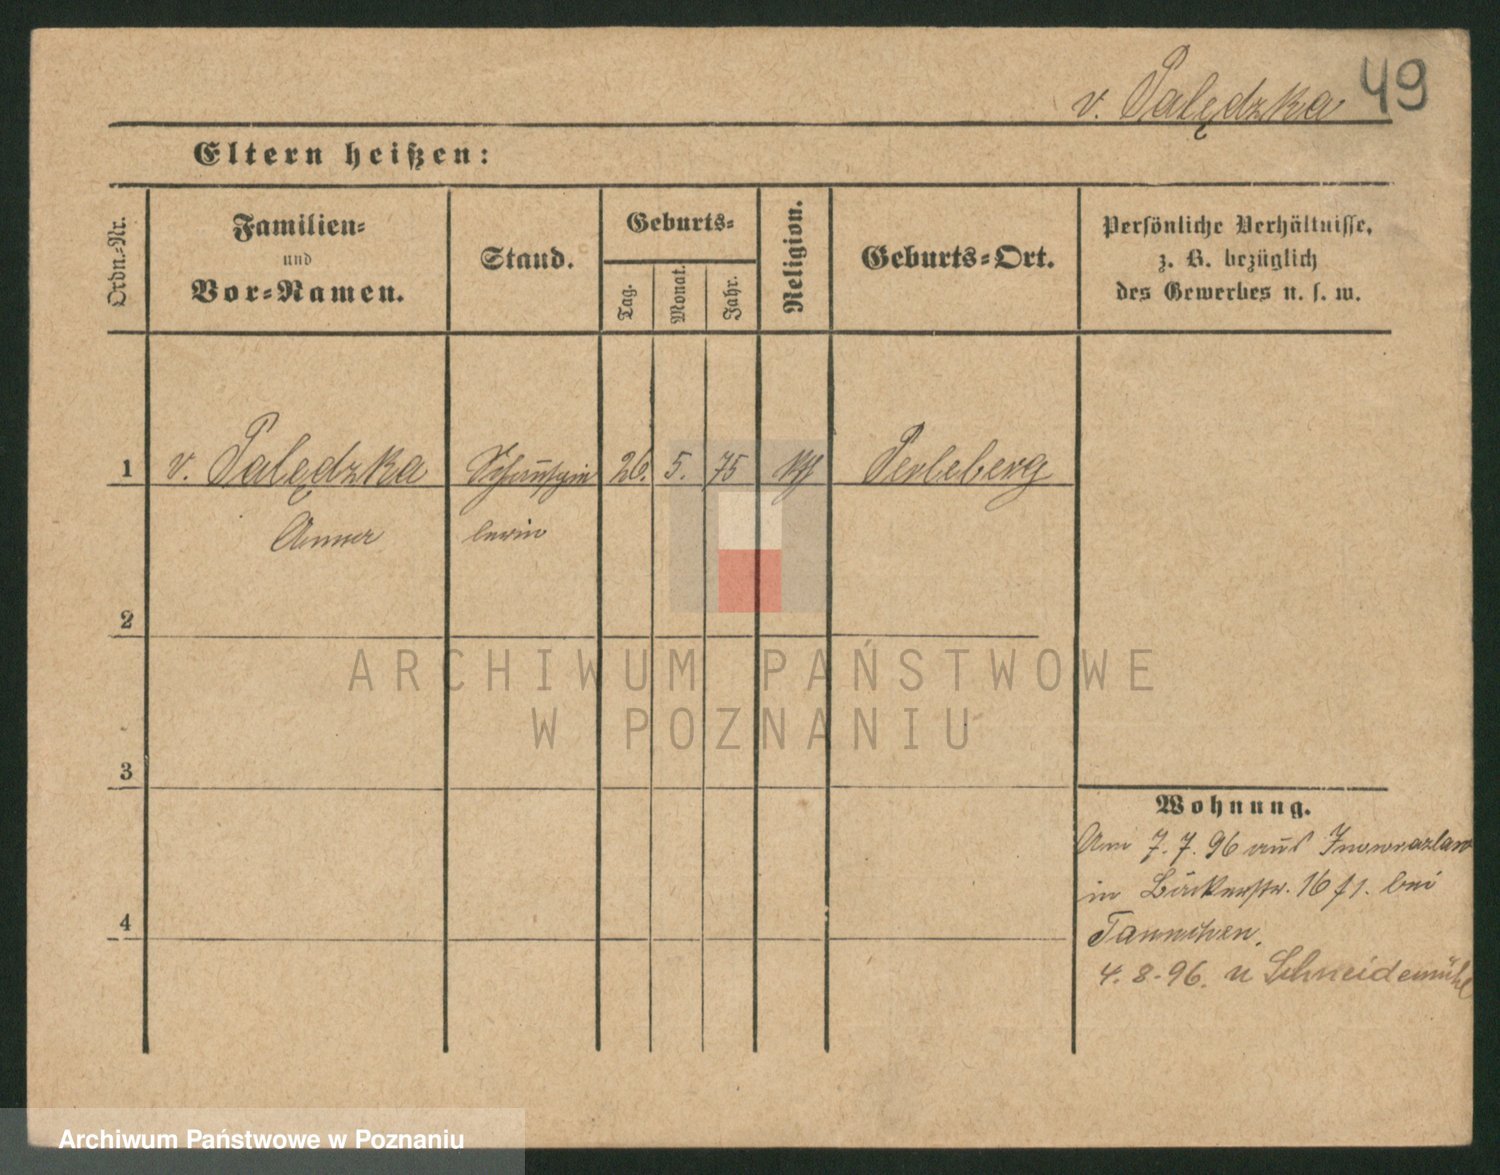 v. Palędzka 49
Eltern heißen:
Ordn.-Nr.
Familien-
und
Vor-Namen.
Stand.
Geburts-
Tag.
Monat.
Jahr.
Religion.
Geburts-Ort.
Persönliche Verhältnisse,
z. B. bezüglich
des Gewerbes u. s. w.
1 v. Palędzka Schauspie 26. 5. 75 Perleberg
Anna lerin
2
3
4
Wohnung.
Am 7. 7. 96 aus Inowrazlaw
in Bäckerstr. 16 bei
Tannchen.
4. 8. 96. n Schneidemühl
ARCHIWUM PAŃSTWOWE
W POZNANIU
Archiwum Państwowe w Poznaniu